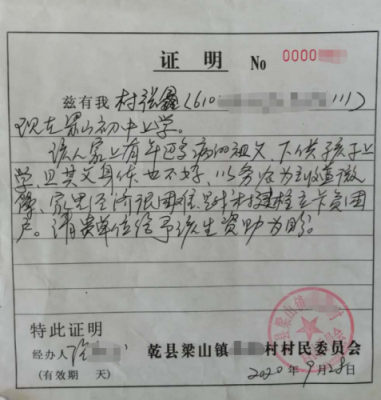 证明 No 0000
兹有我村张鑫(610 111)
现在梁山初中上学。
该人家上有年迈多病的祖父下供孩子上
学,且其父身体也不好,以务农为主收益微
薄,家里经济很困难,是我村建档立卡贫困
户。请贵单位给予该生资助为盼。
特此证明
经办人
乾县梁山镇 村村民委员会
(有效期 天) 2020年9月28日
县梁山镇